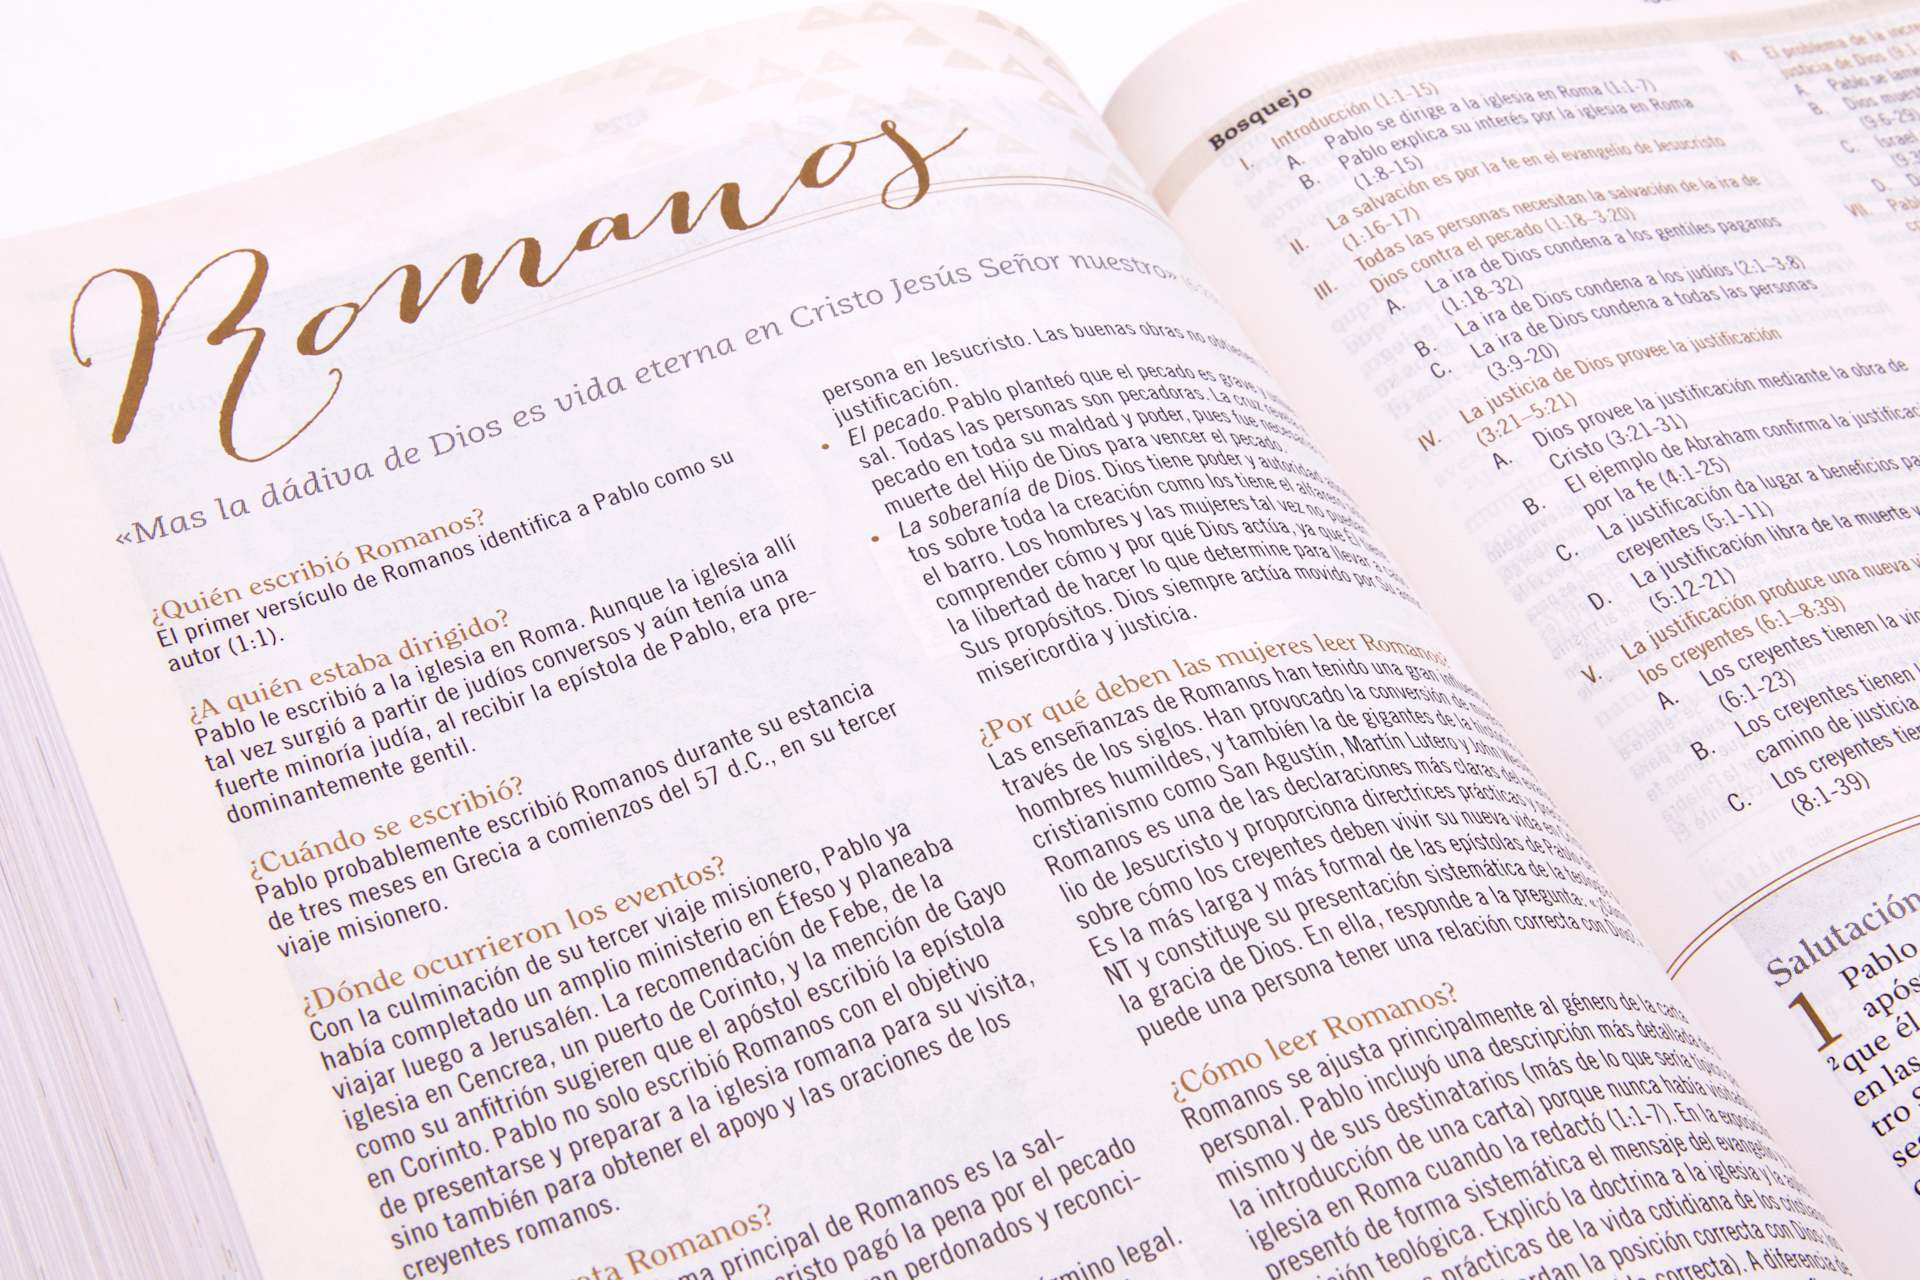 Romanos
«Mas la dádiva de Dios es vida eterna en Cristo Jesús Señor nuestro»
¿Quién escribió Romanos?
El primer versículo de Romanos identifica a Pablo como su
autor (1:1).
¿A quién estaba dirigido?
Pablo le escribió a la iglesia en Roma. Aunque la iglesia allí
tal vez surgió a partir de judíos conversos y aún tenía una
fuerte minoría judía, al recibir la epístola de Pablo, era pre-
dominantemente gentil.
¿Cuándo se escribió?
Pablo probablemente escribió Romanos durante su estancia
de tres meses en Grecia a comienzos del 57 d.C., en su tercer
viaje misionero.
¿Dónde ocurrieron los eventos?
Con la culminación de su tercer viaje misionero, Pablo ya
había completado un amplio ministerio en Éfeso y planeaba
viajar luego a Jerusalén. La recomendación de Febe, de la
iglesia en Cencrea, un puerto de Corinto, y la mención de Gayo
como su anfitrión sugieren que el apóstol escribió la epístola
en Corinto. Pablo no solo escribió Romanos con el objetivo
de presentarse y preparar a la iglesia romana para su visita,
sino también para obtener el apoyo y las oraciones de los
creyentes romanos.
Romanos?
principal de Romanos es la sal-
pagó la pena por el pecado
perdonados y reconci-
legal.
persona en Jesucristo. Las buenas obras no
justificación.
• El pecado. Pablo planteó que el pecado es grave y
sal. Todas las personas son pecadoras. La cruz
pecado en toda su maldad y poder, pues fue
muerte del Hijo de Dios para vencer el pecado.
• La soberanía de Dios. Dios tiene poder y autoridad
tos sobre toda la creación como los tiene el
el barro. Los hombres y las mujeres tal vez no
comprender cómo y por qué Dios actúa, ya que Él
la libertad de hacer lo que determine para llevar a
Sus propósitos. Dios siempre actúa movido por Su
misericordia y justicia.
¿Por qué deben las mujeres leer Romanos?
Las enseñanzas de Romanos han tenido una gran
través de los siglos. Han provocado la conversión de
hombres humildes, y también la de gigantes de la
cristianismo como San Agustín, Martín Lutero y John
Romanos es una de las declaraciones más claras del
lio de Jesucristo y proporciona directrices prácticas y
sobre cómo los creyentes deben vivir su nueva vida en
Es la más larga y más formal de las epístolas de Pablo
NT y constituye su presentación sistemática de la
la gracia de Dios. En ella, responde a la pregunta:
puede una persona tener una relación correcta con Dios?
¿Cómo leer Romanos?
Romanos se ajusta principalmente al género de la carta
personal. Pablo incluyó una descripción más detallada de
mismo y de sus destinatarios (más de lo que sería
la introducción de una carta) porque nunca había
iglesia en Roma cuando la redactó (1:1-7). En la
presentó de forma sistemática el mensaje del
teológica. Explicó la doctrina a la iglesia y
prácticas de la vida cotidiana de los
la posición correcta con Dios
correcta). A diferencia de
Bosquejo
I. Introducción (1:1-15)
A. Pablo se dirige a la iglesia en Roma (1:1-7)
B. Pablo explica su interés por la iglesia en Roma
(1:8-15)
II. La salvación es por la fe en el evangelio de Jesucristo
(1:16-17)
III. Todas las personas necesitan la salvación de la ira de
Dios contra el pecado (1:18–3:20)
A. La ira de Dios condena a los gentiles paganos
(1:18-32)
B. La ira de Dios condena a los judíos (2:1–3:8)
C. La ira de Dios condena a todas las personas
(3:9-20)
IV. La justicia de Dios provee la justificación
(3:21–5:21)
A. Dios provee la justificación mediante la obra de
Cristo (3:21-31)
B. El ejemplo de Abraham confirma la
por la fe (4:1-25)
C. La justificación da lugar a beneficios
creyentes (5:1-11)
D. La justificación libra de la muerte y
(5:12-21)
V. La justificación produce una nueva
los creyentes (6:1–8:39)
A. Los creyentes tienen la
(6:1-23)
B. Los creyentes tienen
camino de justicia
C. Los creyentes
(8:1-39)
VI. El problema de la
justicia de Dios
A. Pablo se
B. Dios
(9:6-29)
C. Israel
D.
VII.
Salutación
1 Pablo
que él
en las